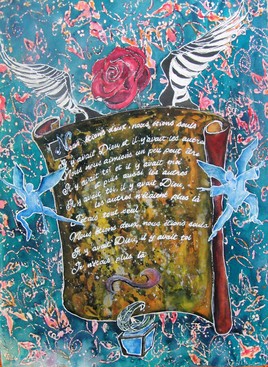 Nous étions deux, nous étions seuls
Il y avait Dieu et il y avait les autres
Nous nous aimions un peu peut être
Il y avait toi et il y avait moi
Et puis aussi les autres
Il y avait toi, il y avait Dieu,
Et les autres n'étaient plus là
J'étais tout seul
Nous étions deux, nous étions seuls
Il y avait Dieu, il y avait toi
Je n'étais plus là